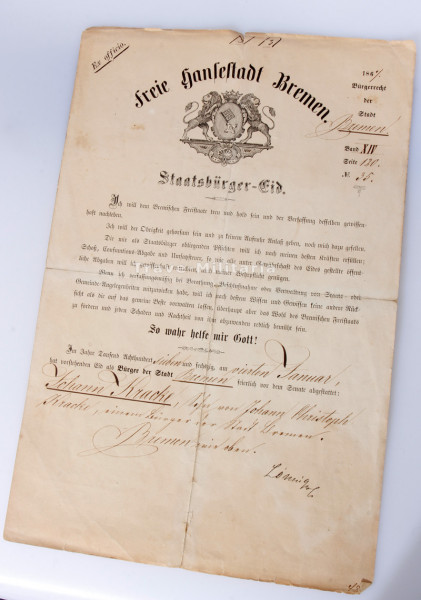 Ex officio.
Freie Hansestadt Bremen.
1867.
Bürgerrecht
der
Stadt
Bremen
Band XIV
Seite 120
№ 36.
Staatsbürger-Eid.
Ich will dem Bremischen Freistaate treu und hold sein und der Verfassung desselben gewissen-
haft nachleben.
Ich will der Obrigkeit gehorsam sein und zu keinem Aufruhr Anlaß geben, noch mich dazu gesellen.
Die mir als Staatsbürger obliegenden Pflichten will ich nach meinen besten Kräften erfüllen;
Schoß, Consumtions-Abgabe und Umsatzsteuer,
Abgaben will ich
Wenn ich verfassungsmäßig bei Berathung, Beschlußnahme oder Verwaltung von Staats- oder
Gemeinde-Angelegenheiten mitzuwirken habe, will ich nach bestem Wissen und Gewissen keine andere Rück-
sicht als die auf das gemeine Beste vorwalten lassen, überhaupt aber das Wohl des Bremischen Freistaats
zu fördern und jeden Schaden und Nachtheil von ihm abzuwenden redlich bemüht sein.
So wahr helfe mir Gott!
Im Jahre Tausend Achthundert sieben und sechszig, am vierten Januar,
hat vorstehenden Eid als Bürger der Stadt Bremen feierlich vor dem Senate abgestattet:
Johann Kracke, Sohn von Johann Christoph
Kracke, einem Bürger der Stadt Bremen.
Bremen wie oben.